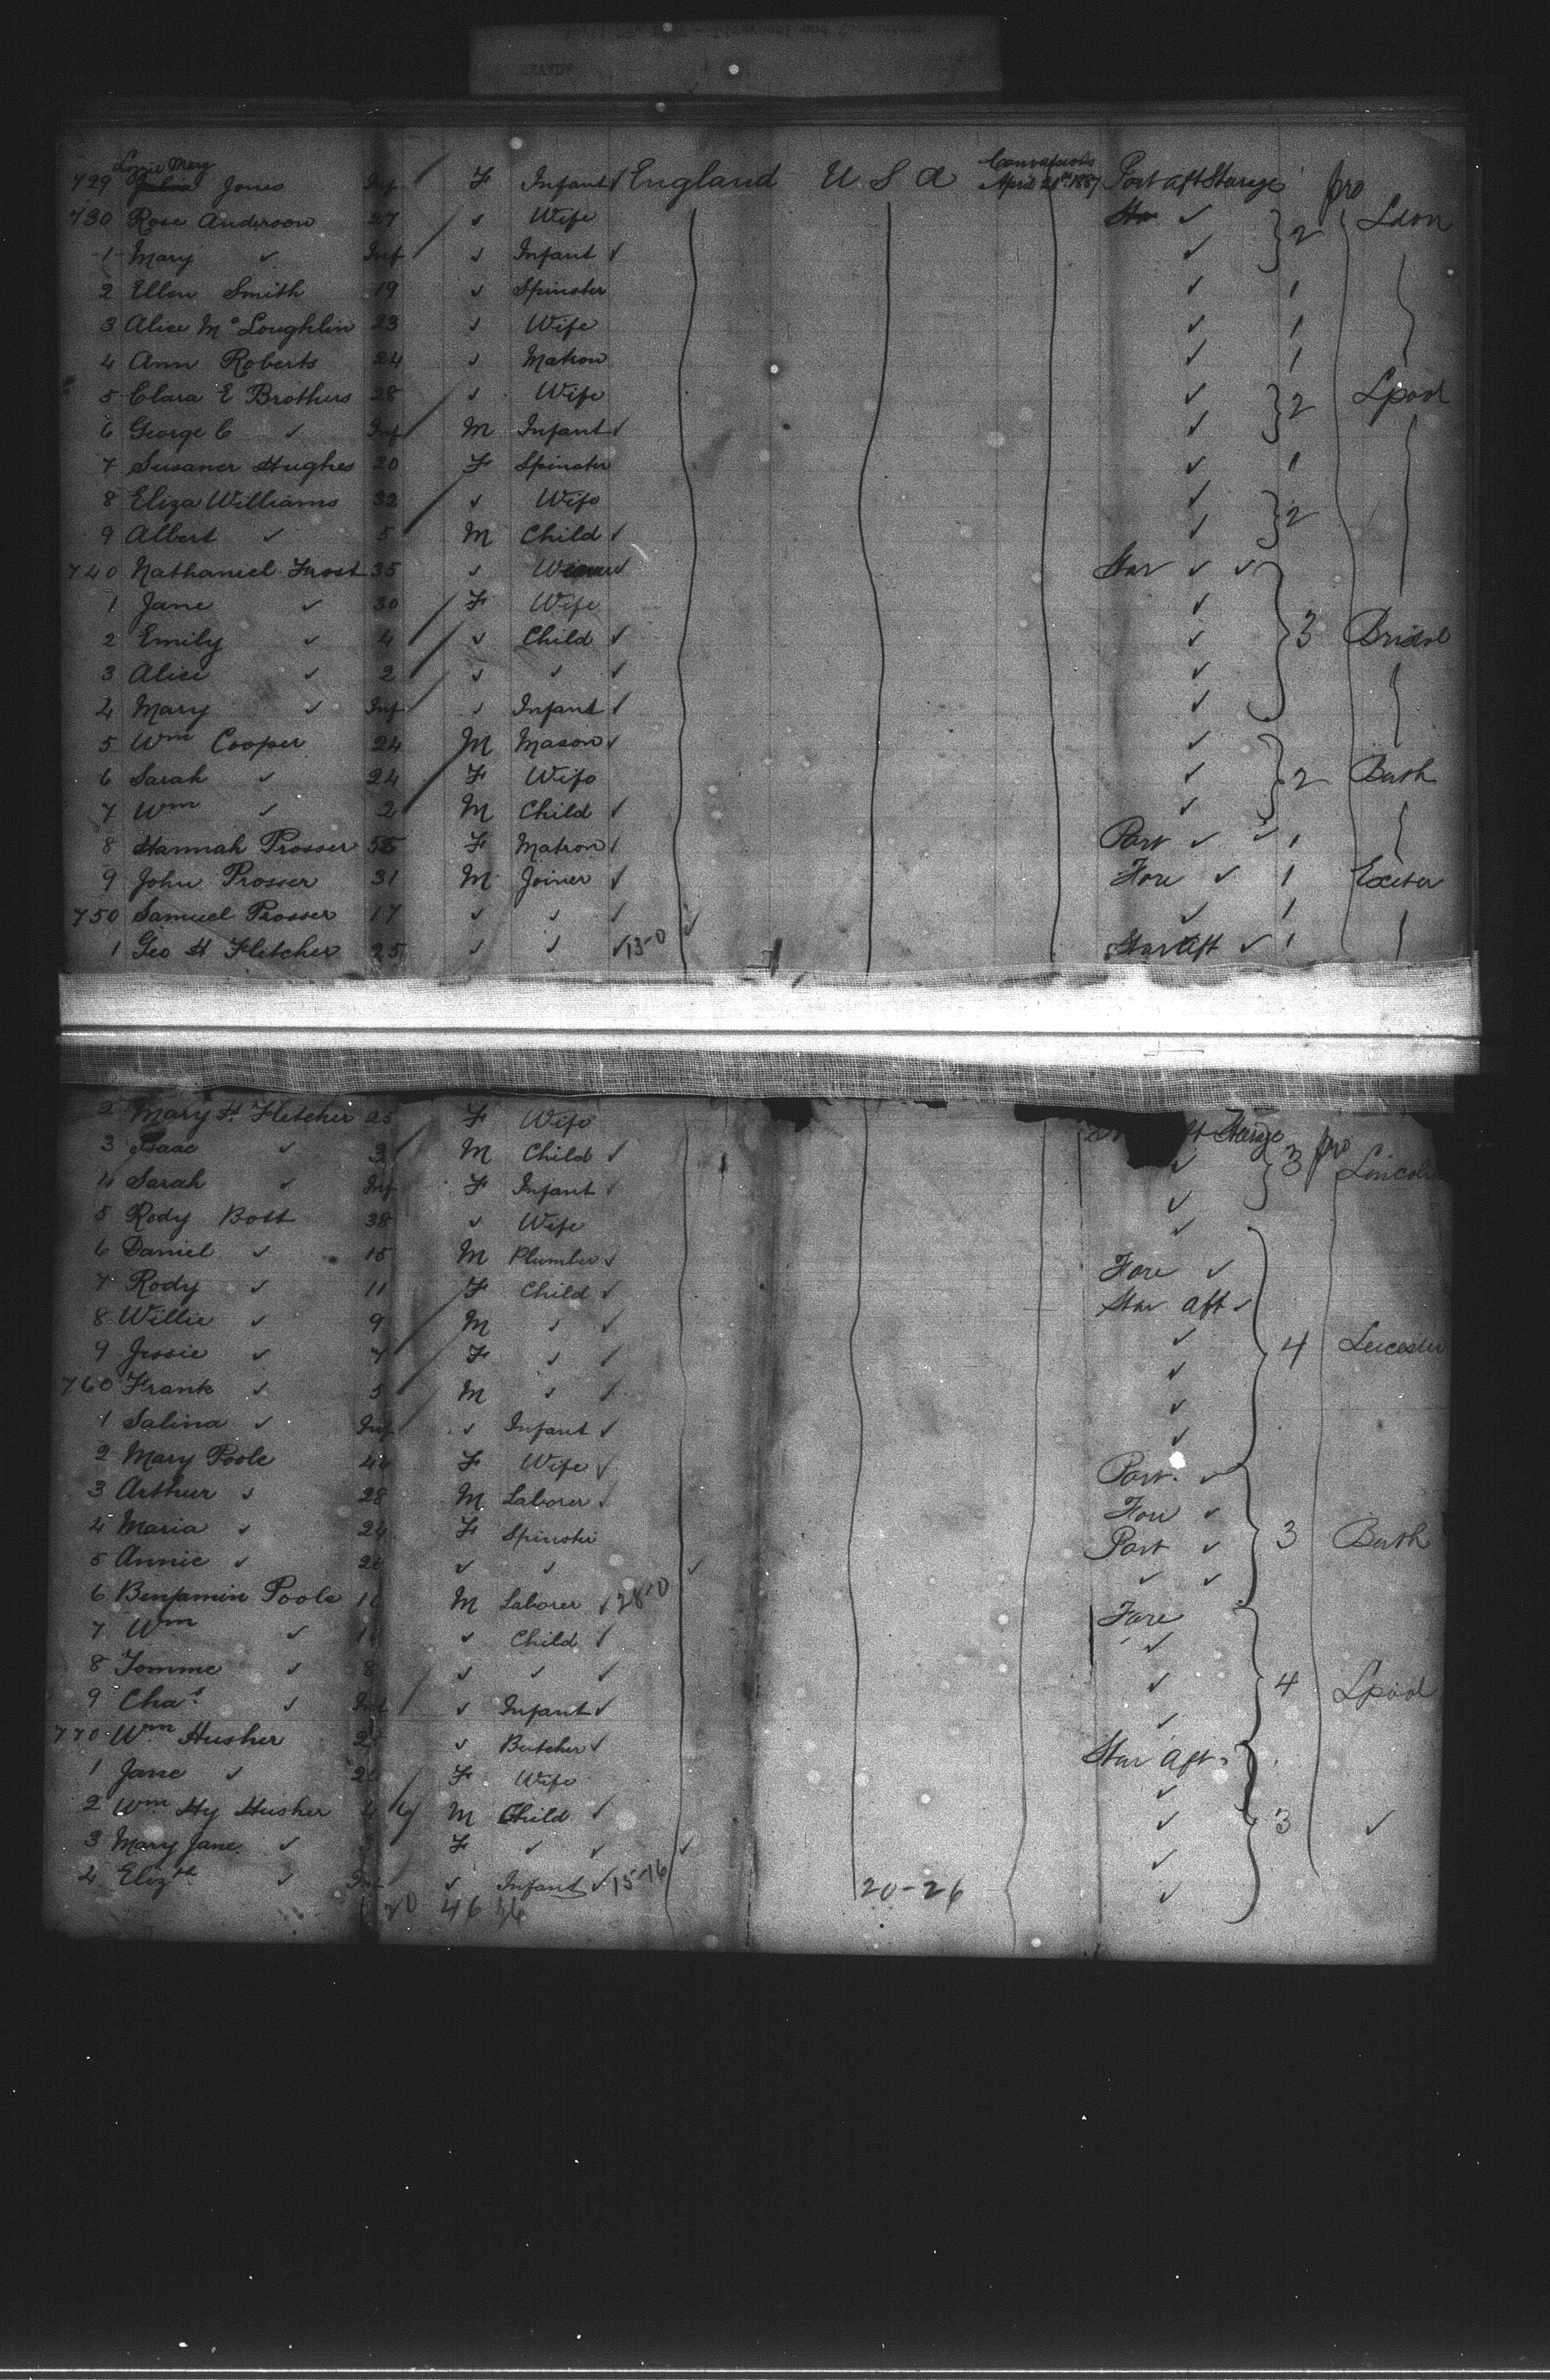 Lizzie Mary
729 Jones Inf F Infant ✓ England U S A April 21st 1887 Port aft Sterage 1 pro
730 Rose Anderson 27 ✓ Wife Star ✓ 2 Ldon
1 Mary ✓ Inf ✓ Infant ✓ ✓
2 Ellen Smith 19 ✓ Spinster ✓ 1
3 Alice McLoughlin 23 ✓ Wife ✓ 1
4 Ann Roberts 24 ✓ Matron ✓ 1
5 Clara E Brothers 28 ✓ Wife ✓ 2 Lpool
6 George C ✓ Inf M Infant ✓ ✓
7 Susaner Hughes 20 F Spinster ✓ 1
8 Eliza Williams 32 ✓ Wife ✓ 2
9 Albert ✓ 5 M Child ✓ ✓
740 Nathaniel Frost 35 ✓ Star ✓ ✓
1 Jane ✓ 30 F Wife ✓
2 Emily ✓ 4 ✓ Child ✓ ✓ 3 Bristol
3 Alice ✓ 2 ✓ ✓ ✓ ✓
4 Mary ✓ Inf ✓ Infant ✓ ✓
5 Wm Cooper 24 M Mason ✓ ✓
6 Sarah ✓ 24 F Wife ✓ 2 Bath
7 Wm ✓ 2 M Child ✓ ✓
8 Hannah Prosser 55 F Matron ✓ Port ✓ ✓ 1
9 John Prosser 31 M Joiner ✓ Fore ✓ 1 Exeter
750 Samuel Prosser 17 ✓ ✓ ✓ ✓ ✓ 1
1 Geo H Fletcher 25 ✓ ✓ ✓ 13-0 Star Aft ✓ 1
2 Mary H. Fletcher 25 F Wife Sterage
3 Isaac ✓ 3 M Child ✓ ✓ 3 pro Lincoln
4 Sarah ✓ Inf F Infant ✓ ✓
5 Rody Bott 38 ✓ Wife ✓
6 Daniel ✓ 15 M Plumber ✓ Fore ✓
7 Rody ✓ 11 F Child ✓ Star aft ✓
8 Willie ✓ 9 M ✓ ✓ ✓
9 Jessie ✓ 7 F ✓ ✓ ✓ 4 Leicester
760 Frank ✓ 5 M ✓ ✓ ✓
1 Salina ✓ Inf ✓ Infant ✓ ✓
2 Mary Poole F Wife ✓ Port ✓
3 Arthur ✓ 28 M Laborer ✓ Fore ✓
4 Maria ✓ 24 F Spinster Port ✓ 3 Bath
5 Annie ✓ ✓ ✓ ✓ ✓ ✓
6 Benjamin Poole M Laborer ✓ 28-0 Fore
7 Wm ✓ ✓ Child ✓ ✓
8 Tomme ✓ 8 ✓ ✓ ✓ ✓ 4 Lpool
9 Chas ✓ Inf ✓ Infant ✓ ✓
770 Wm Husher ✓ Butcher ✓ Star Aft
1 Jane ✓ F Wife ✓
2 Wm Hy Husher 4 M Child ✓ ✓ 3 ✓
3 Mary Jane ✓ F ✓ ✓ ✓ ✓
4 Elizth ✓ Inf ✓ Infant ✓ 15-16 20-26 ✓
20 46